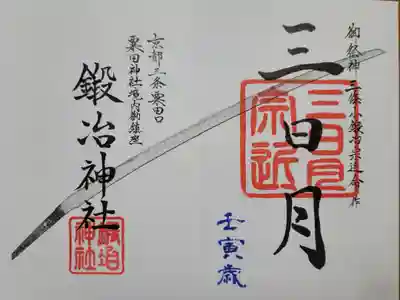 御祭神 三條小鍛冶宗近命 作
三日月
三日月
宗近
壬寅歳
京都三条粟田口
粟田神社境内御鎮座
鍛冶神社
鍛冶
神社